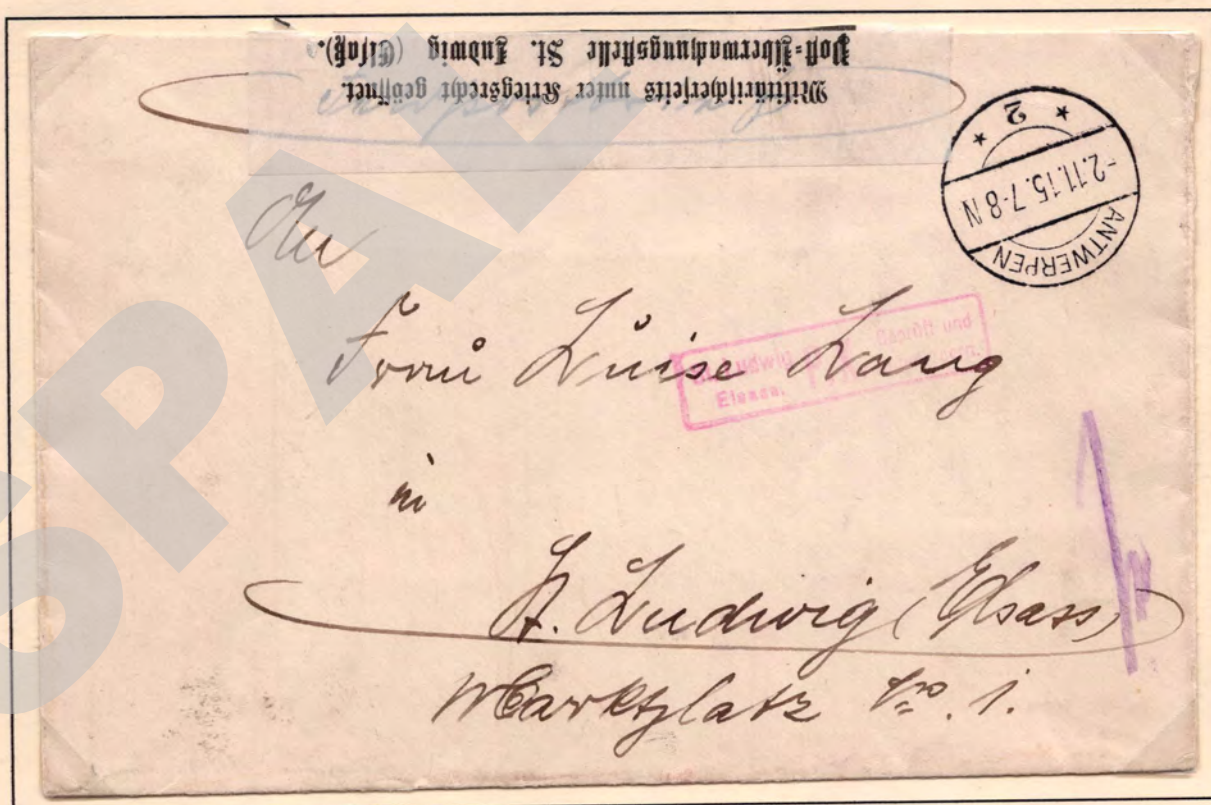 Militärischerseits unter Kriegsrecht geöffnet.
Post-Überwachungsstelle St. Ludwig (Elsaß).
ANTWERPEN
-2.11.15.7-8N
* 2 *
An
Frau Luise Lang
Ludwig Geprüft und
Elsass.
in
St. Ludwig (Elsass)
Marktplatz No. 1.
SPAL